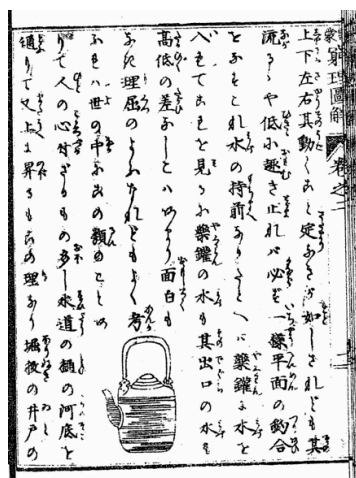 窮理圖解 卷之二
上下左右其動くこと定なきが如しされども其
流るゝや低に趣き止れバ必ず一樣平面の釣合
をなすこれ水の持前なりたとへバ藥鑵に水を
入れてこれを見るに藥鑵の水も其出口の水も
高低の差なしこハあまり面白も
なき理屈のよふなれどもよく考
ふれバ世の中に此類のことあ
りて人の心付ざるもの多し水道の樋の河底を
通りて又上に昇るも此理なり堀拔の井戸の